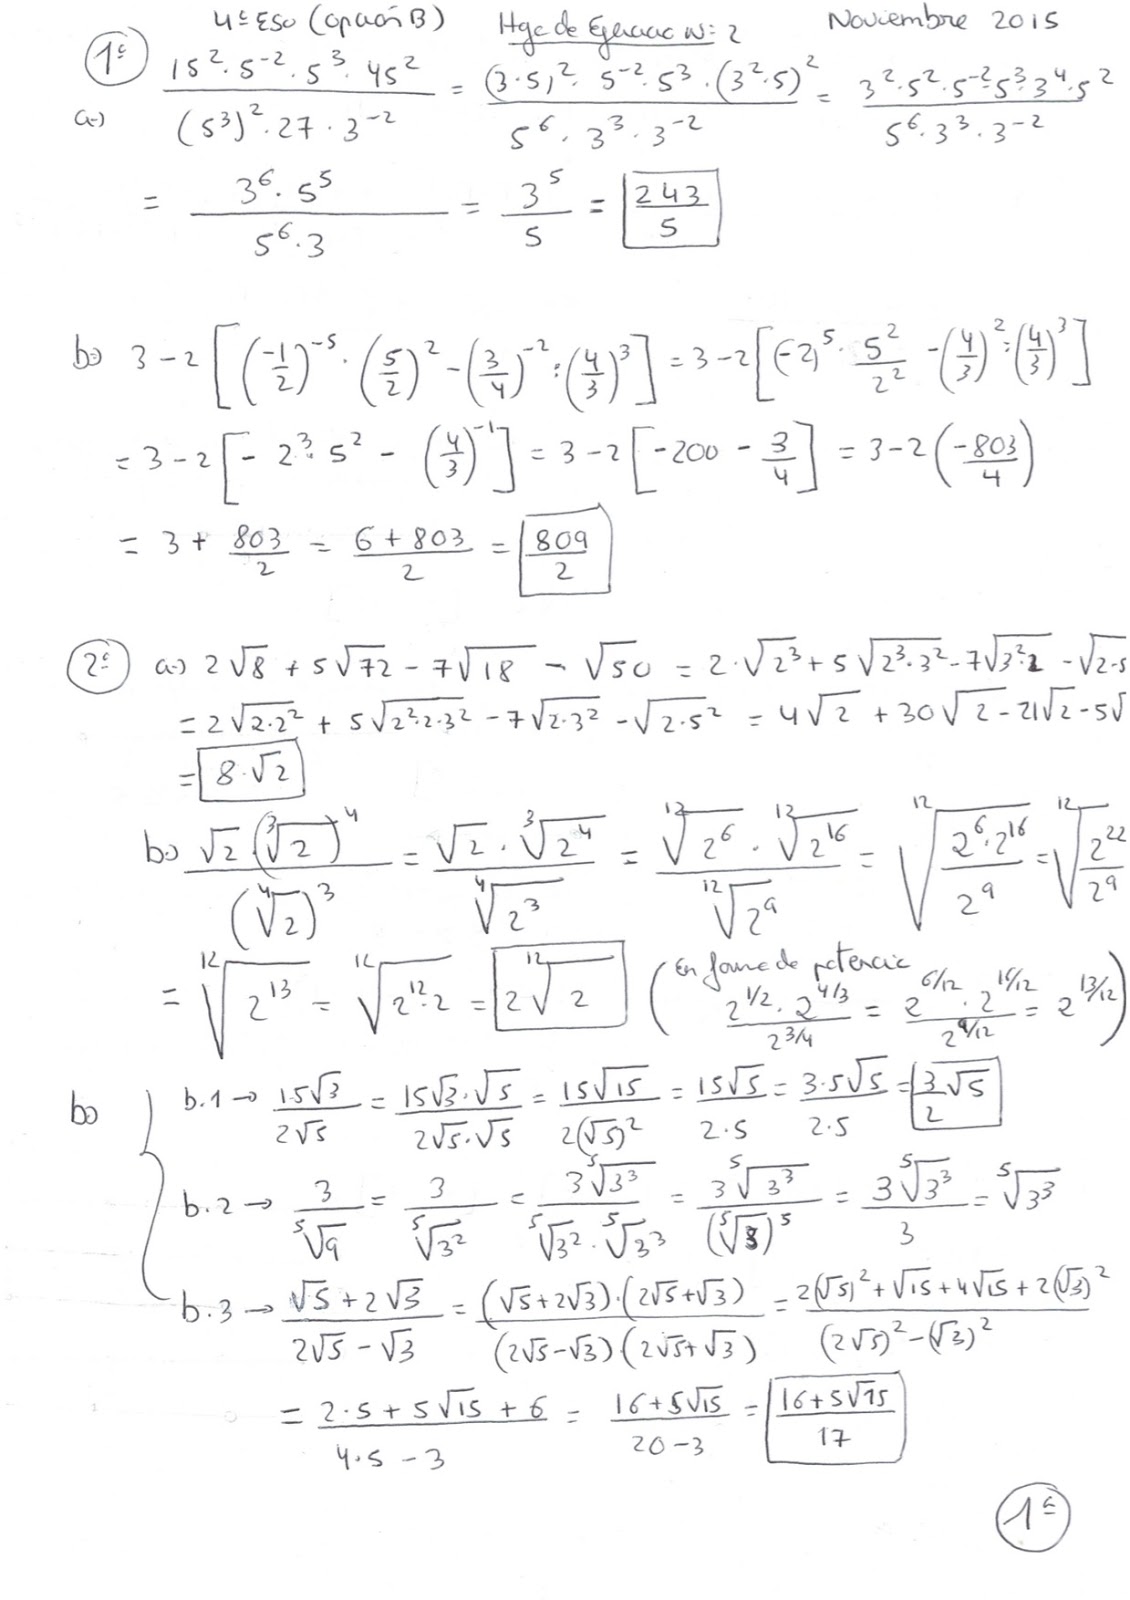 4º ESO (opción B) Hoja de Ejercicio Nº 2 Noviembre 2015
1º
a·) (15² · 5⁻² · 5³ · 45²) / ((5³)² · 27 · 3⁻²) = ((3·5)² · 5⁻² · 5³ · (3²·5)²) / (5⁶ · 3³ · 3⁻²) = (3² · 5² · 5⁻² · 5³ · 3⁴ · 5²) / (5⁶ · 3³ · 3⁻²)
= (3⁶ · 5⁵) / (5⁶ · 3) = 3⁵ / 5 = 243 / 5
b·) 3 − 2 [(−1/2)⁻⁵ · (5/2)² − (3/4)⁻² : (4/3)³] = 3 − 2 [(−2)⁵ · 5²/2² − (4/3)² : (4/3)³]
= 3 − 2 [− 2³ · 5² − (4/3)⁻¹] = 3 − 2 [−200 − 3/4] = 3 − 2 (−803/4)
= 3 + 803/2 = (6 + 803)/2 = 809/2
2º a·) 2√8 + 5√72 − 7√18 − √50 = 2·√2³ + 5√(2³·3²) − 7√(3²·2) − √(2·5
= 2√(2·2²) + 5√(2²·2·3²) − 7√(2·3²) − √(2·5²) = 4√2 + 30√2 − 21√2 − 5√
= 8·√2
b·) (√2 (∛2)⁴) / (∜2)³ = (√2 · ∛2⁴) / ∜2³ = (¹²√2⁶ · ¹²√2¹⁶) / ¹²√2⁹ = ¹²√(2⁶·2¹⁶ / 2⁹) = ¹²√(2²² / 2⁹)
= ¹²√2¹³ = ¹²√(2¹²·2) = 2 ¹²√2 (En forma de potencia (2^(1/2) · 2^(4/3)) / 2^(3/4) = (2^(6/12) · 2^(16/12)) / 2^(9/12) = 2^(13/12))
b·) b.1 → 15√3 / 2√5 = (15√3·√5) / (2√5·√5) = 15√15 / 2(√5)² = 15√5 / 2·5 = 3·5√5 / 2·5 = 3√5 / 2
b.2 → 3 / ⁵√9 = 3 / ⁵√3² = 3 ⁵√3³ / (⁵√3² · ⁵√3³) = 3 ⁵√3³ / (⁵√3)⁵ = 3 ⁵√3³ / 3 = ⁵√3³
b.3 → (√5 + 2√3) / (2√5 − √3) = ((√5+2√3)·(2√5+√3)) / ((2√5−√3)(2√5+√3)) = (2(√5)² + √15 + 4√15 + 2(√3)²) / ((2√5)² − (√3)²)
= (2·5 + 5√15 + 6) / (4·5 − 3) = (16 + 5√15) / (20 − 3) = (16 + 5√15) / 17
1º